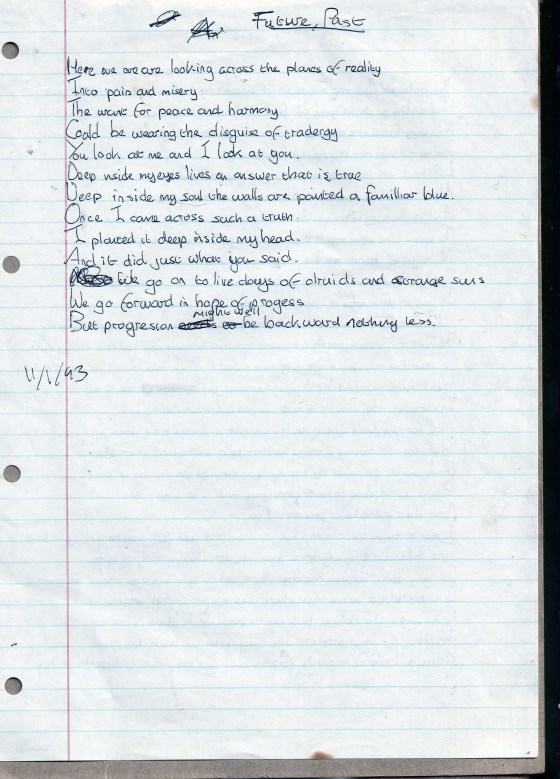 Future, Past
Here we are are looking across the planes of reality
Into pain and misery.
The want for peace and harmony
Could be wearing the disguise of tradergy
You look at me and I look at you.
Deep nside my eyes lives an answer that is true
Deep inside my soul the walls are painted a familliar blue.
Once I came across such a truth.
I planted it deep inside my head.
And it did just what you said.
We go on to live days of druids and orange suns
We go forward in hope of progess
might well
But progresion be backward nothing less.
11/1/93